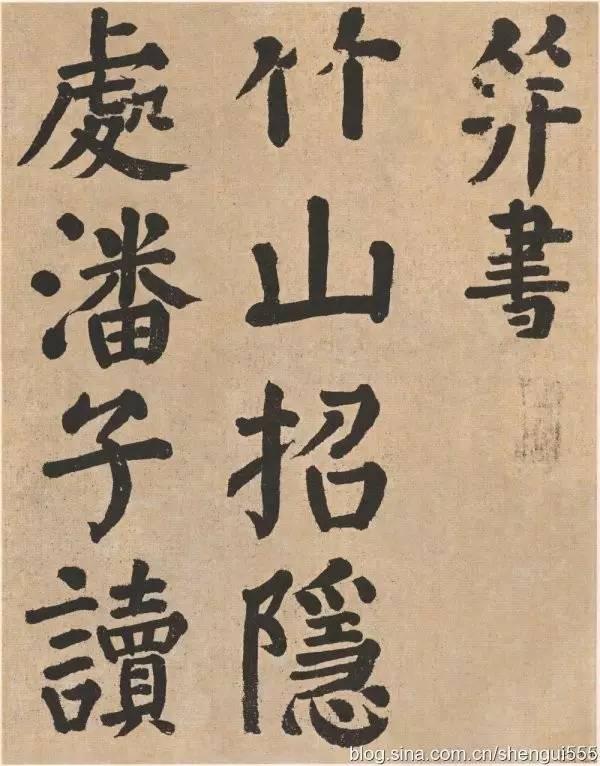 并書
竹山招隱
處潘子讀
blog.sina.com.cn/shengui555